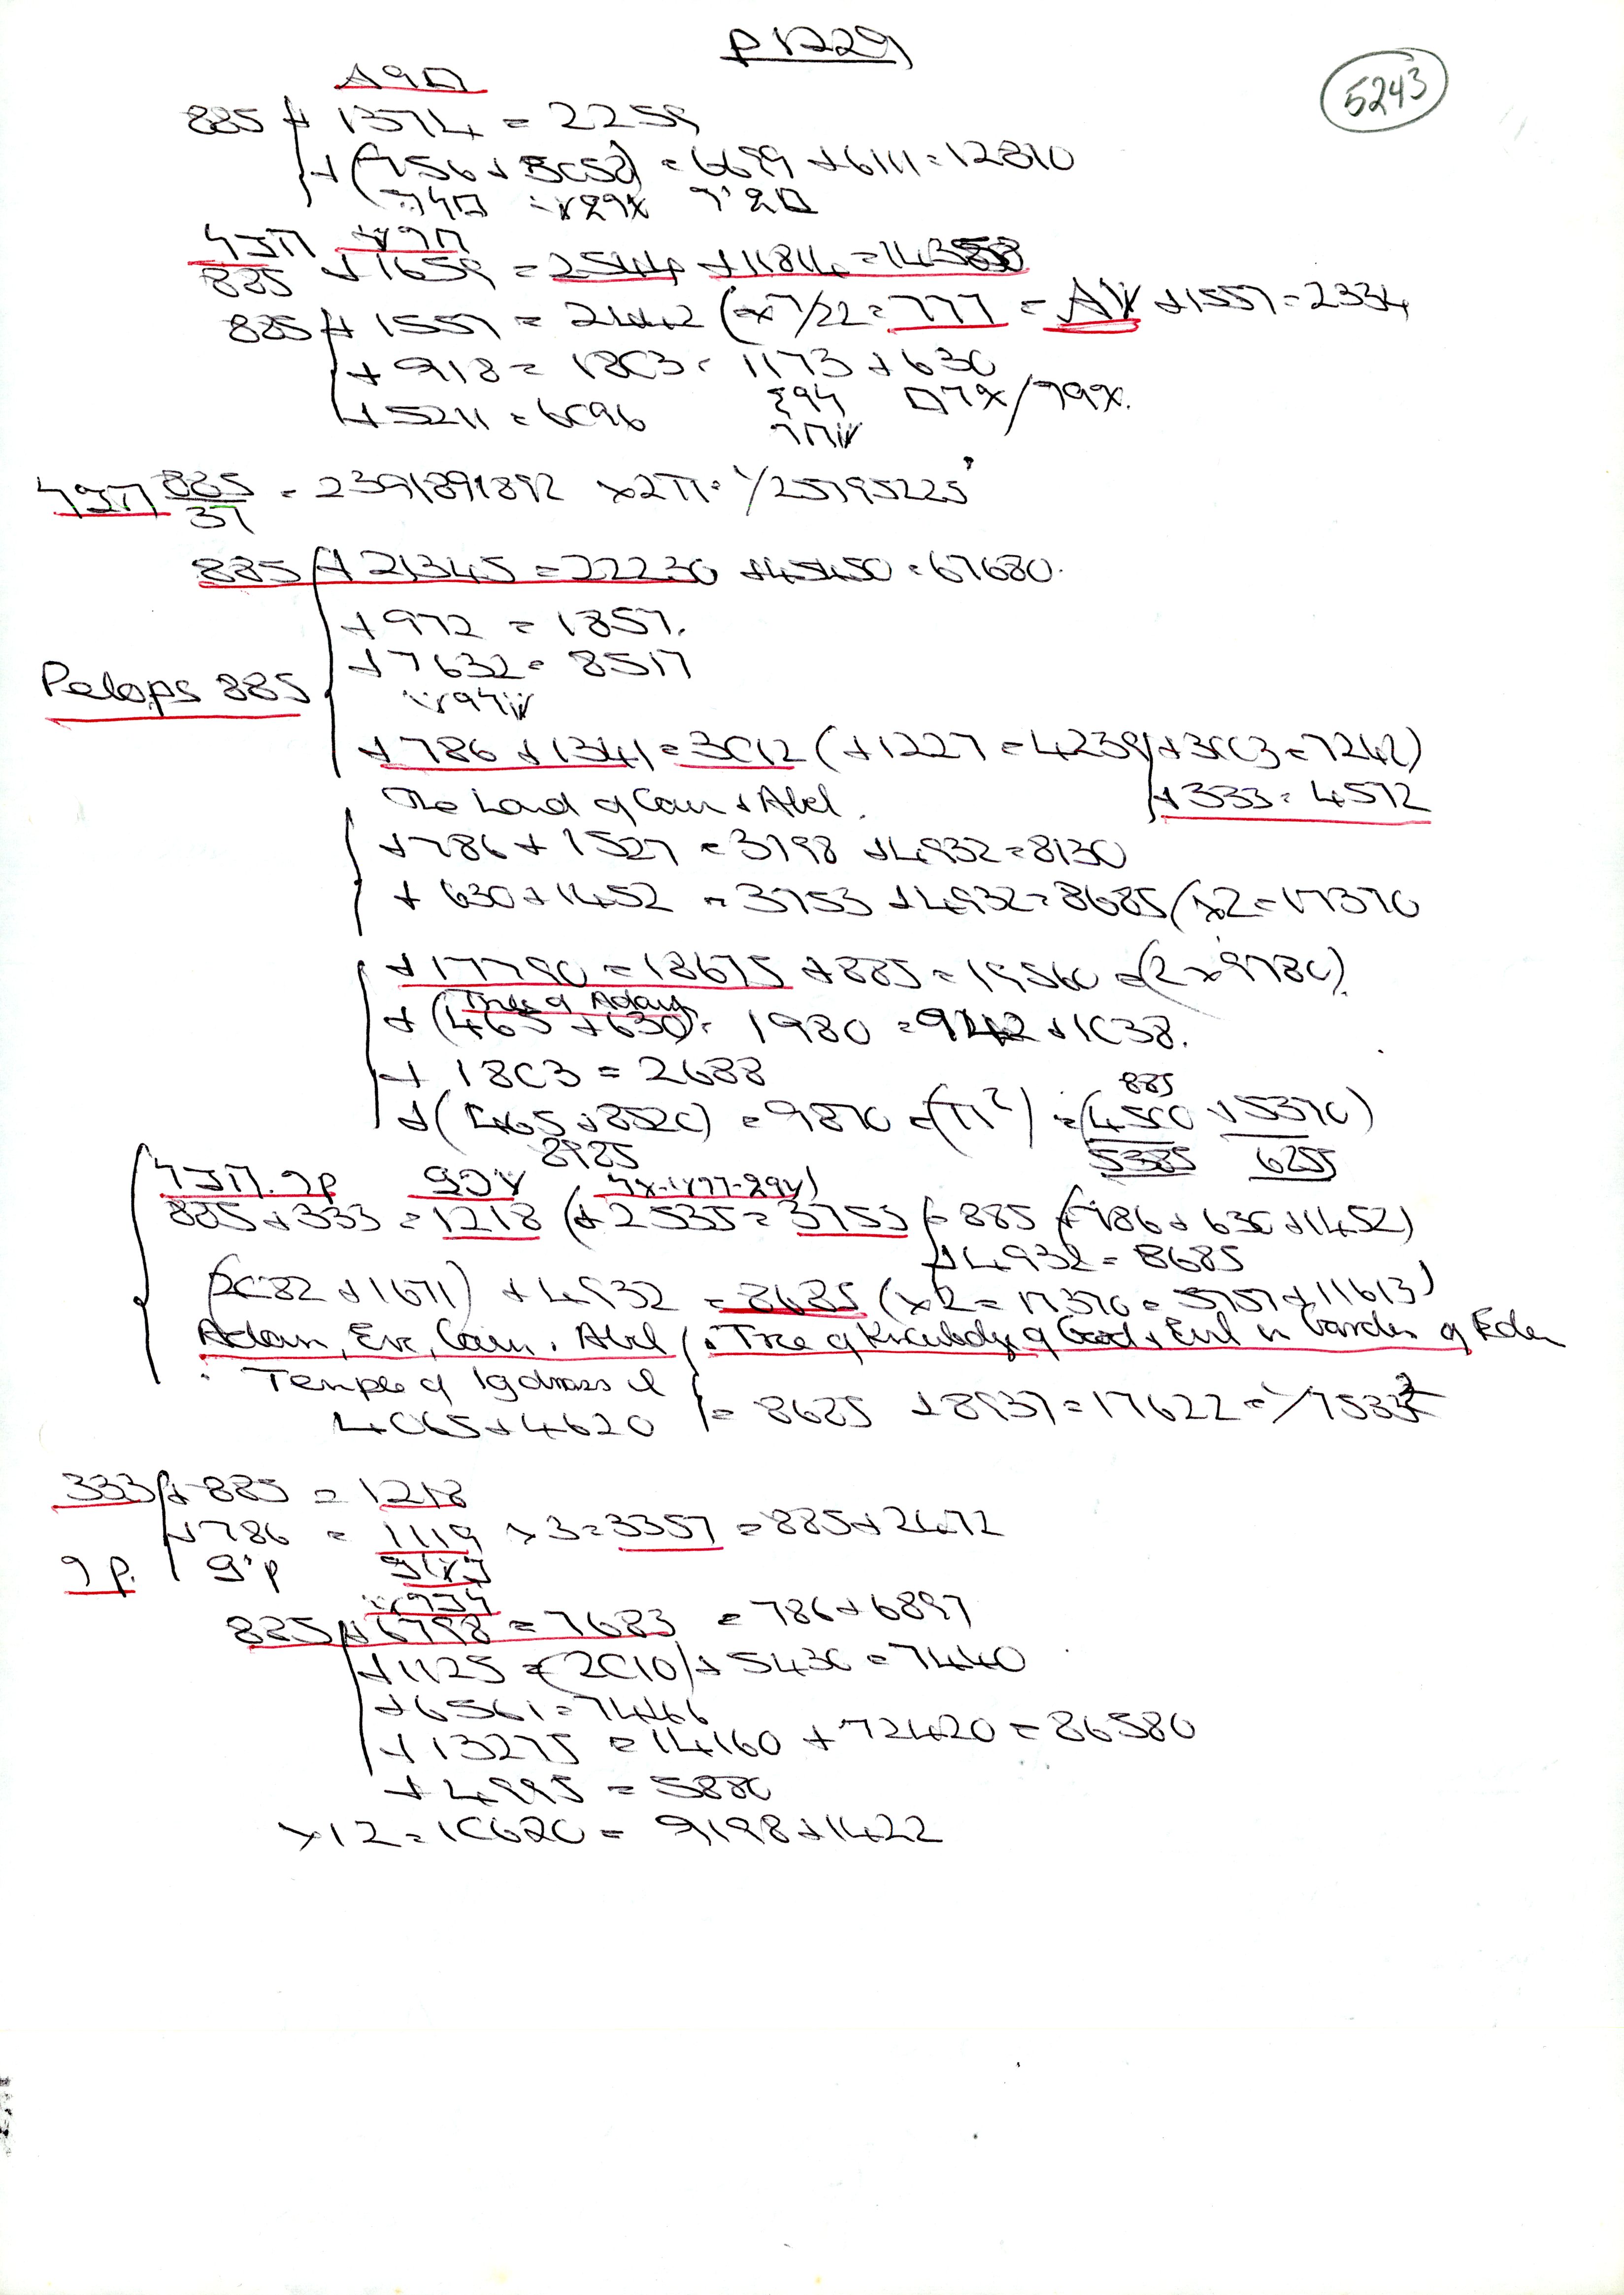 p1729
5243
885 + 1374 = 2259
+ (756 + 5058) = 6699 + 6111 = 12810
885 + 1659 = 2544 + 11814 = 14358
885 + 1557 = 2442 (= x 7/22 = 777 = + 1557 = 2334
+ 918 = 1803 = 1173 + 630
+ 5211 = 6096
885/37 = 2391891892 x 2π = 1/25795225
885 + 21345 = 22230 + 45450 = 67680.
+ 972 = 1857.
+ 7632 = 8517
Pelops 885
+ 786 + 1341 = 3012 (+ 1227 = 4239 + 3003 = 7242)
The Land of Cain & Abel. + 333 = 4572
+ 786 + 1527 = 3198 + 4932 = 8130
+ 630 + 1452 = 3753 + 4932 = 8685 (x2 = 17370
+ 17790 = 18675 + 885 = 19560 = (2 x 9780).
Tree of Adam
+ (465 + 630) = 1980 = 942 + 1038.
+ 1803 = 2688
885
+ (465 + 8520) = 9870 = (π²) = (4500 + 5370)
8985 5385 6255
885 + 333 = 1218 (+ 2535 = 3753 = 885 (+ 786 + 630 + 1452)
+ 4932 = 8685
(2082 + 1671) + 4932 = 8685 (x2 = 17370 = 5757 + 11613)
Adam, Eve, Cain, Abel : Tree of Knowledge of Good & Evil in Garden of Eden
: Temple of Igdrassil
4065 + 4620 = 8685 + 8937 = 17622 =
333 + 885 = 1218
+ 786 = 1119 x 3 = 3357 = 885 + 2472
885 + 6798 = 7683 = 786 + 6897
+ 1125 = (2010) + 5430 = 7440
+ 6561 = 7446
+ 13275 = 14160 + 72420 = 86580
+ 4995 = 5880
x 12 = 10620 = 9198 + 1422